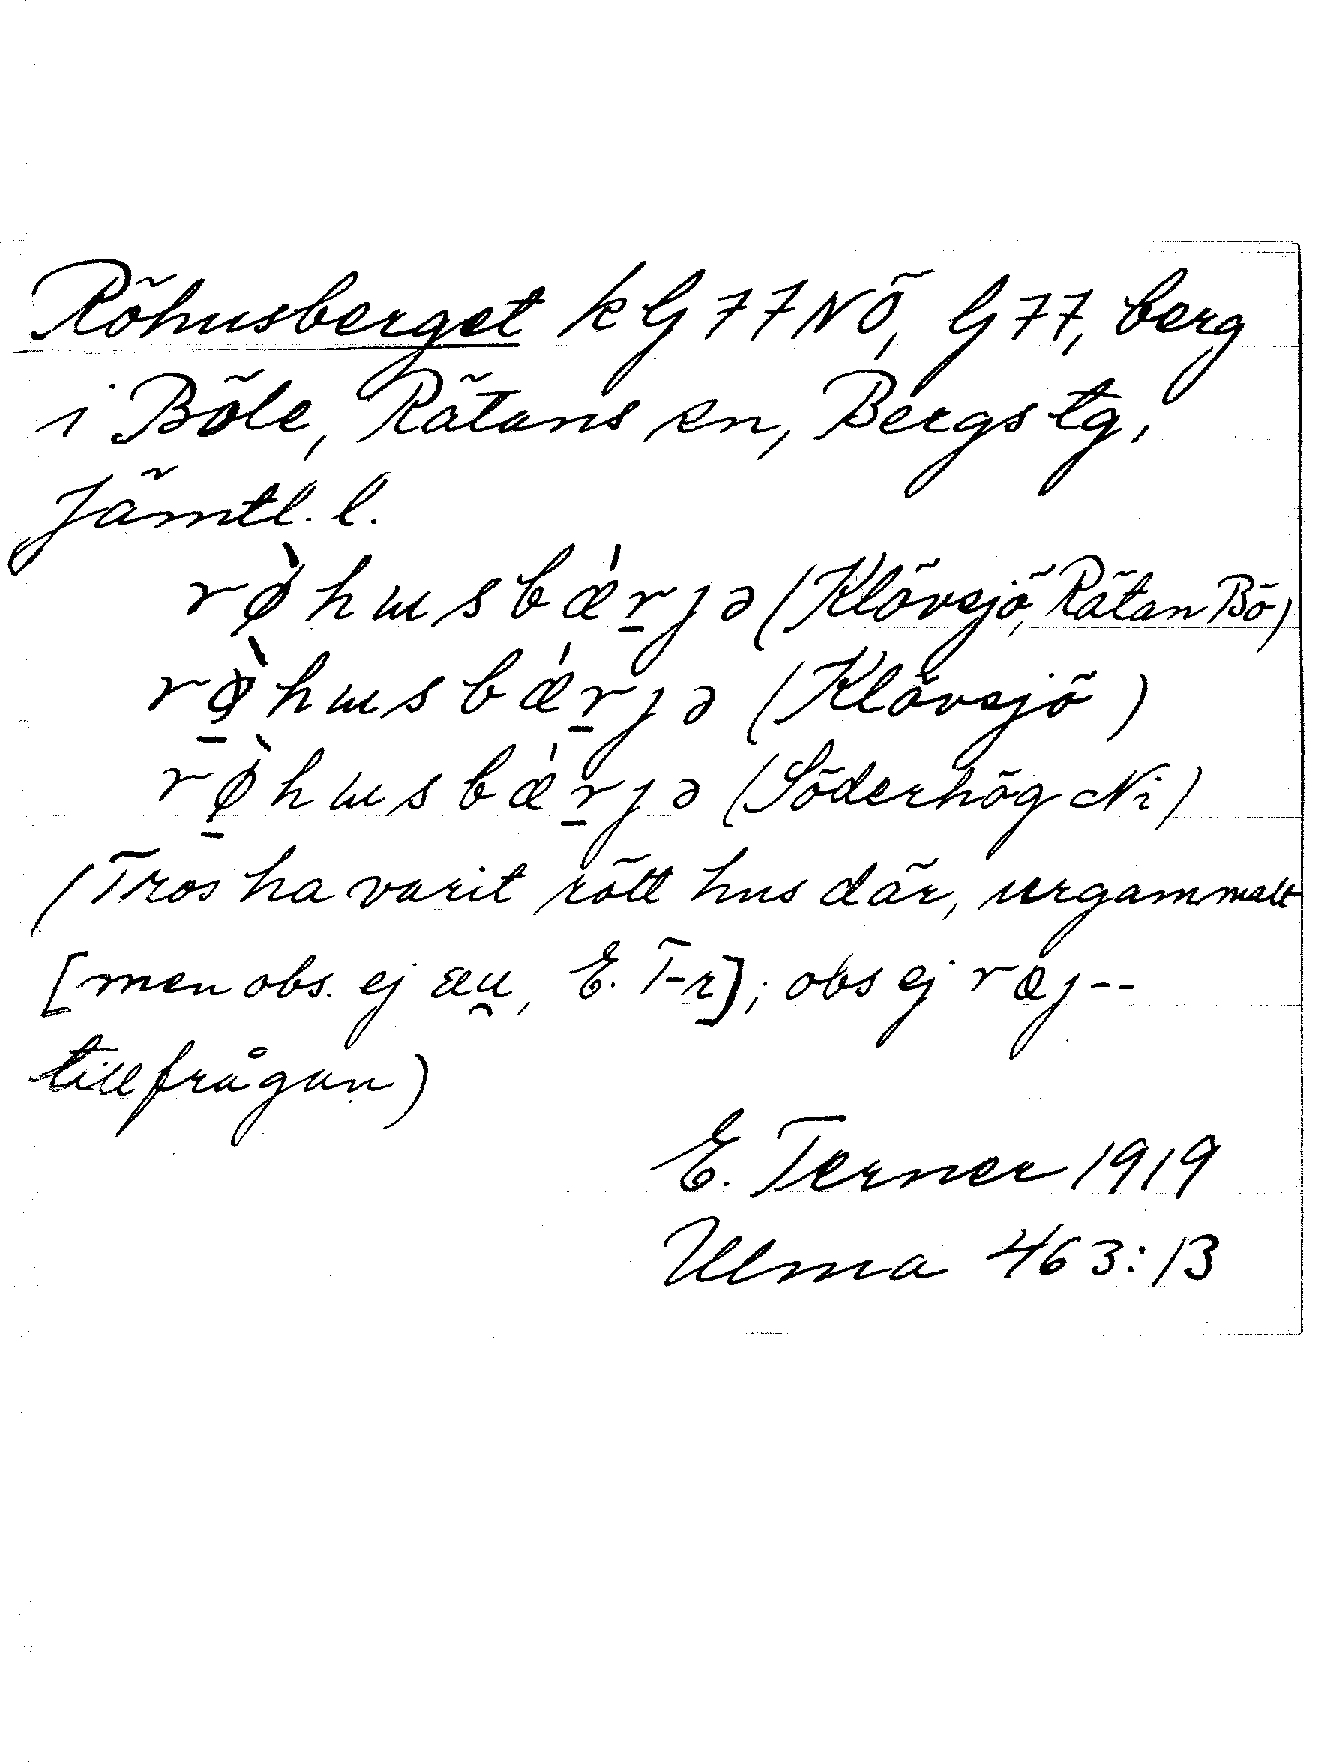 Röhusberget kG77NÖ, G77, berg
i Böle, Rätans sn, Bergs tg,
Jämtl. l.
rø̀hɯsbǽr̠jə (Klövsjö, Rätan Bö)
rø̠̀hɯsbǽr̠jə (Klövsjö)
rø̠̀hɯsbǽr̠jə (Söderhög Ni)
(Tros ha varit rött hus där, urgammalt
[men obs. ej æu̯, E. T-r]; obs ej ræj--
tillfrågan)
E. Terner 1919
Ulma 463:13